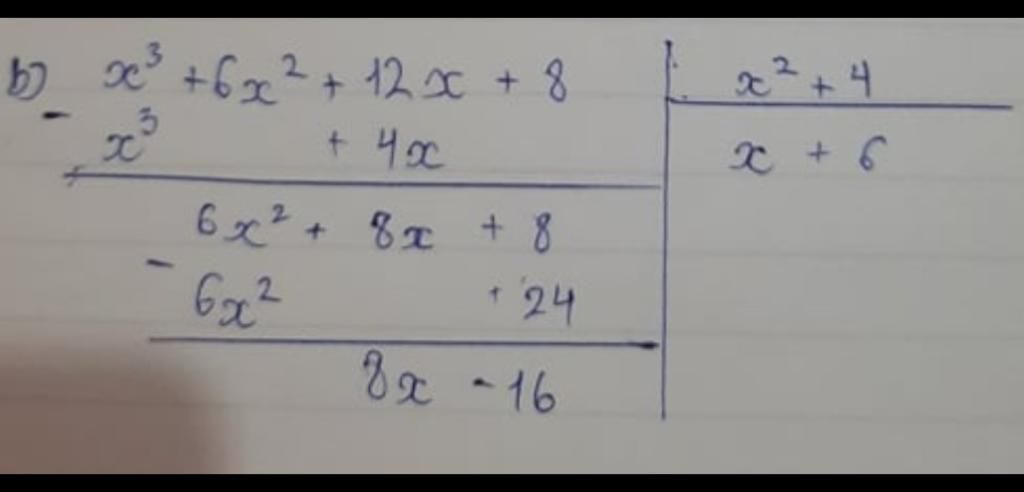 b) x³ + 6x² + 12x + 8 | x² + 4
- x³ + 4x | x + 6
6x² + 8x + 8
- 6x² + 24
8x - 16